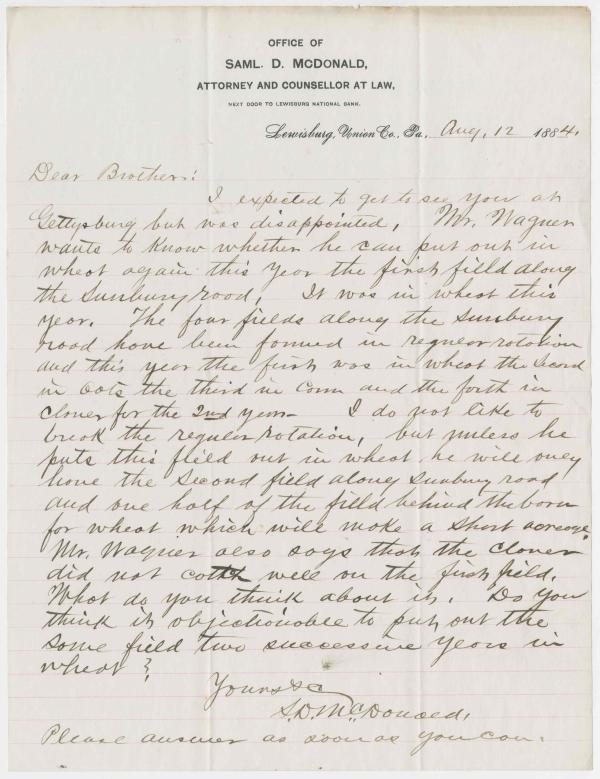 OFFICE OF
SAML. D. McDONALD,
ATTORNEY AND COUNSELLOR AT LAW,
NEXT DOOR TO LEWISBURG NATIONAL BANK.
Lewisburg, Union Co., Pa., Aug, 12 1884.
Dear Brother:
I expected to get to see you at
Gettysburg but was disappointed, Mr. Wagner
wants to know whether he can put out in
wheat again this year the first field along
the Sunbury road, It was in wheat this
year. The four fields along the Sunbury
road have been formed in regular rotation
and this year the first was in wheat the second
in oats the third in corn and the forth in
clover for the 2nd year- I do not like to
break the regular rotation, but unless he
puts this field out in wheat he will only
have the second field along Sunbury road
and one half of the field behind the barn
for wheat which will make a short acreage.
Mr. Wagner also says that the clover
did not catch well on the first field.
What do you think about it. Do you
think it objectionable to put out the
same field two successive years in
wheat?
Yours &c
S.D. McDonald.
Please answer as soon as you can.